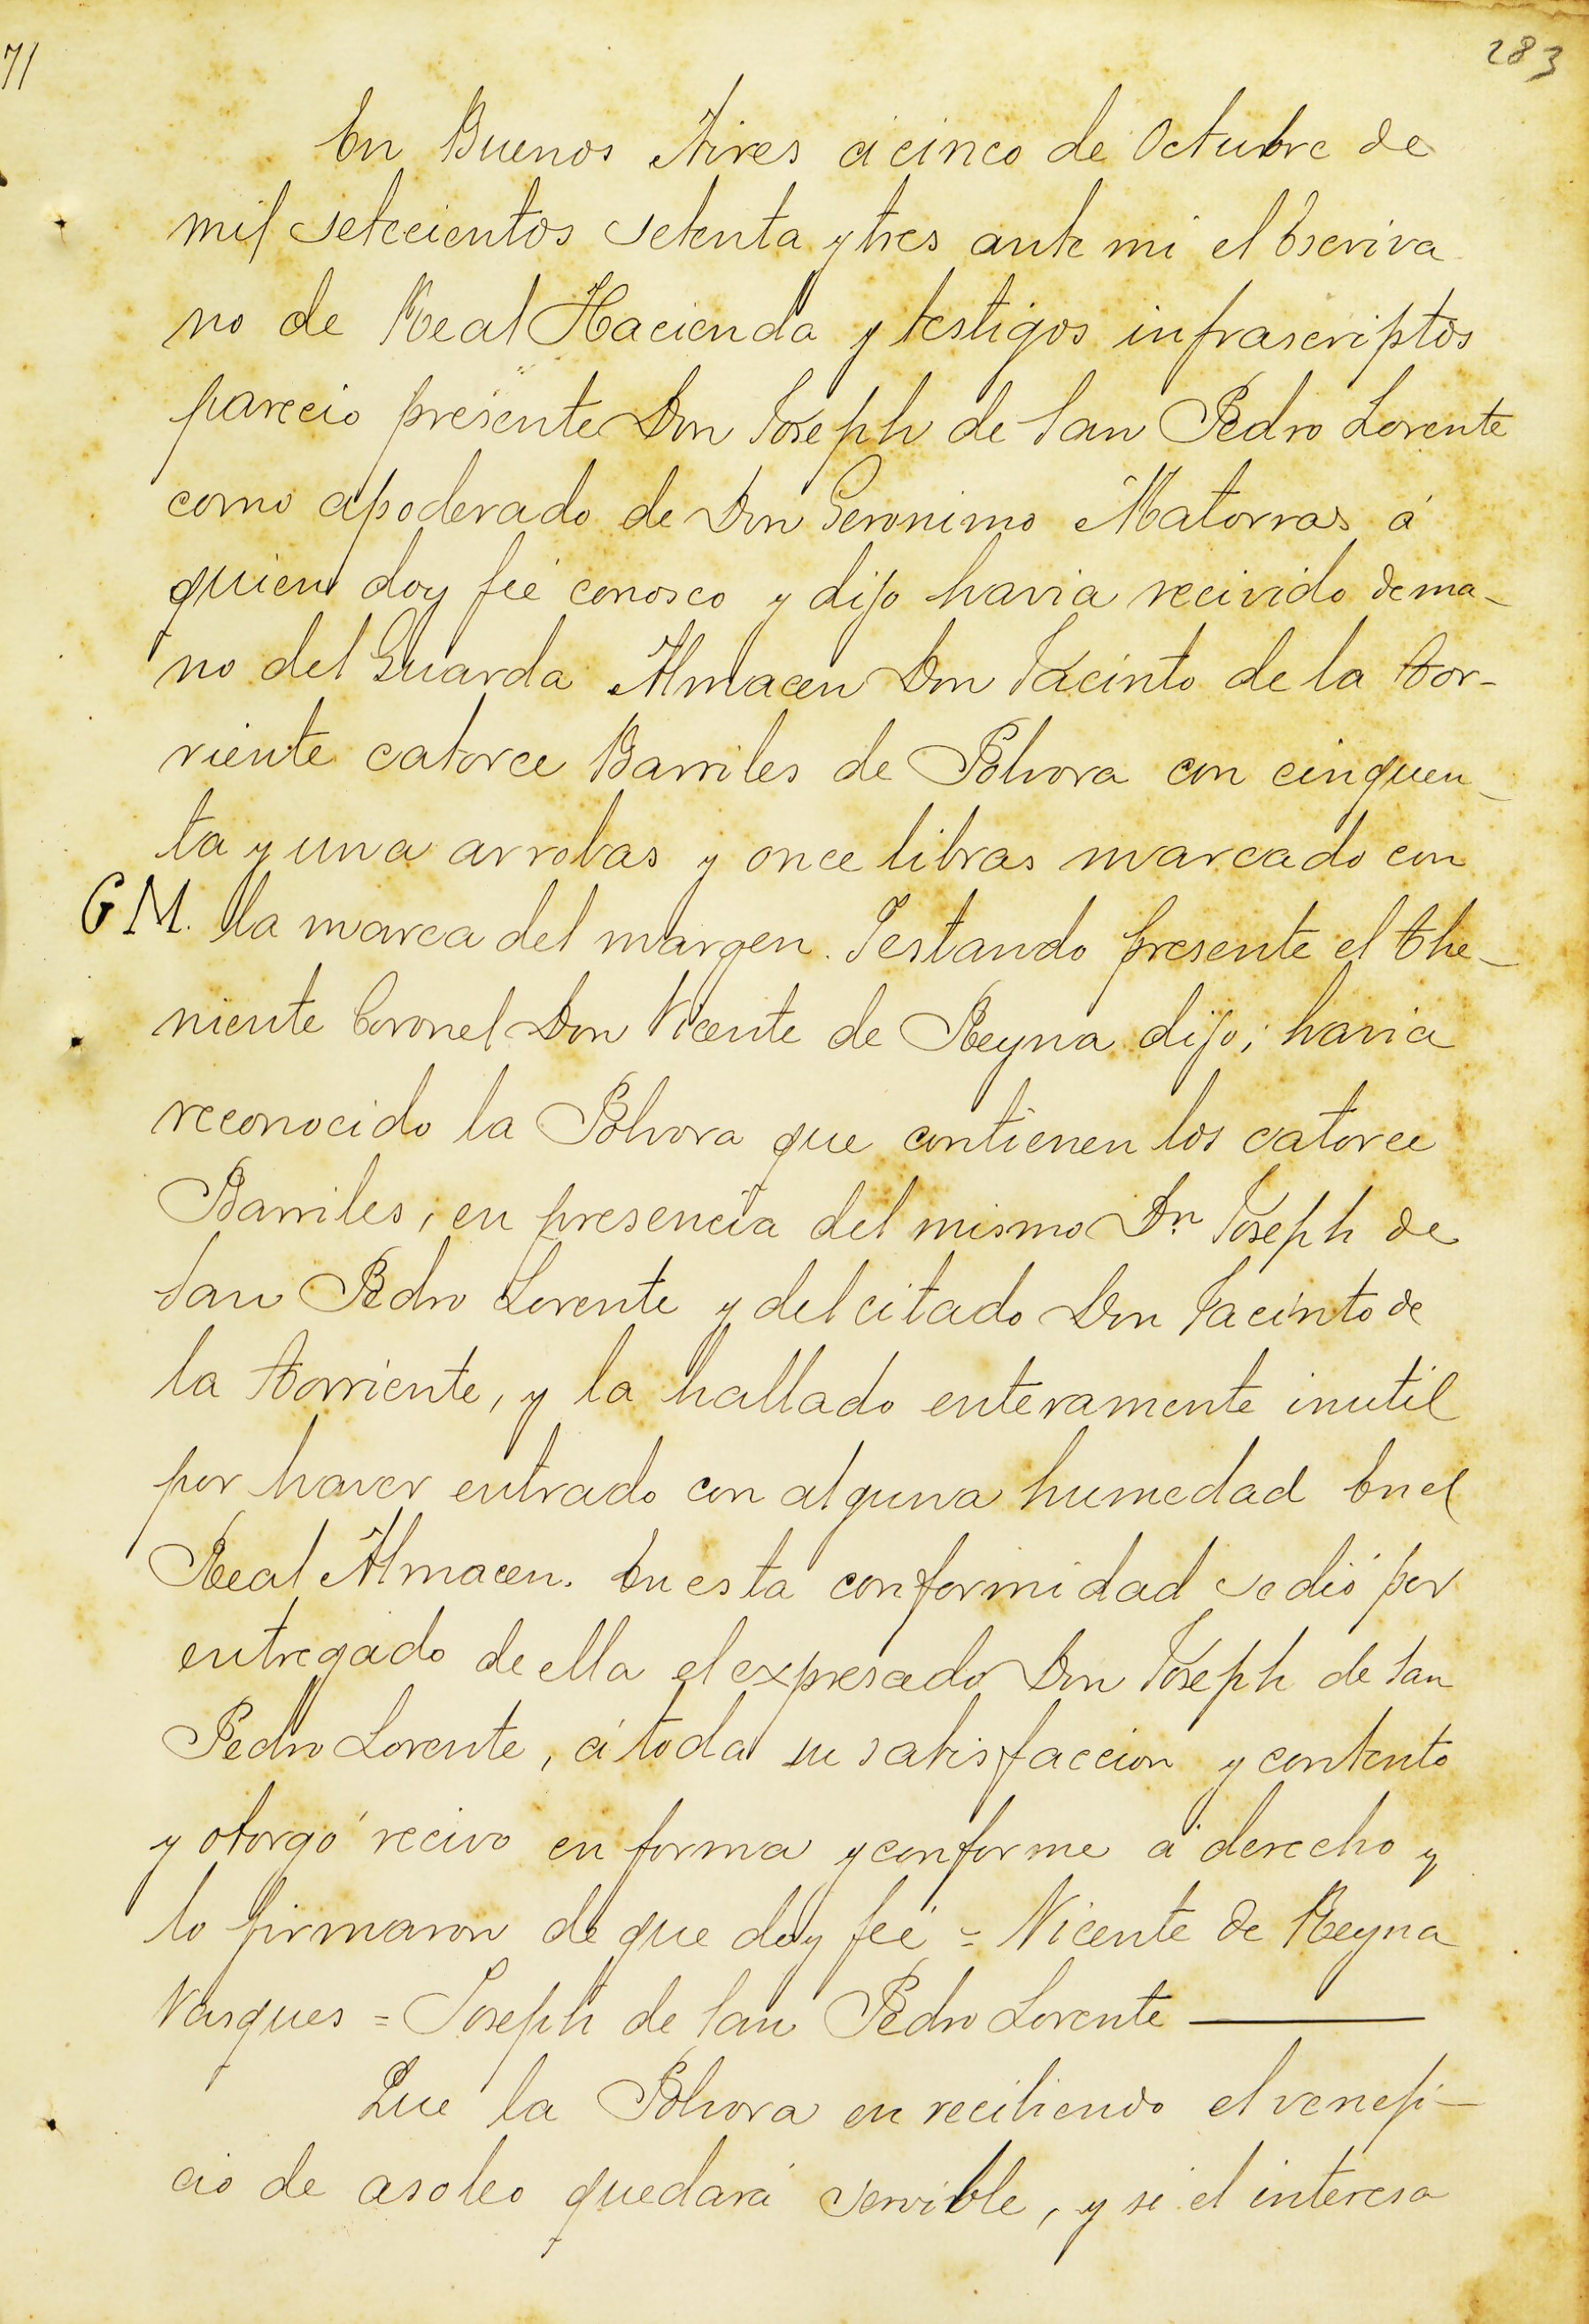 71
283
En Buenos Aires á cinco de Octubre de
mil setecientos setenta y tres ante mi el Escriva
no de Real Hacienda y testigos infrascriptos
parecio presente Don Joseph de San Pedro Lorente
como apoderado de Don Geronimo Matorras á
quien doy feé conosco y dijo havia recivido de ma-
no del Guarda Almacen Don Jacinto de la Tor-
riente catorce Barriles de Polvora con cinquen-
ta y una arrobas y once libras marcado con
GM. la marca del margen. Y estando presente el The-
niente Coronel Don Vicente de Reyna dijo; havia
reconocido la Polvora que contienen los catorce
Barriles, en presencia del mismo Dn Joseph de
San Pedro Lorente y del citado Don Jacinto de
la Torriente, y la hallado enteramente inutil
por haver entrado con alguna humedad En el
Real Almacen. En esta conformidad se dió por
entregado de ella el expresado Don Joseph de San
Pedro Lorente, á toda su satisfaccion y contento
y otorgó recivo en forma y conforme á derecho y
lo firmaron de que doy feé = Vicente de Reyna
Vasques = Joseph de San Pedro Lorente
Que la Polvora en reciliendo el venefi-
cio de asoleo quedará servible, y si el interesa